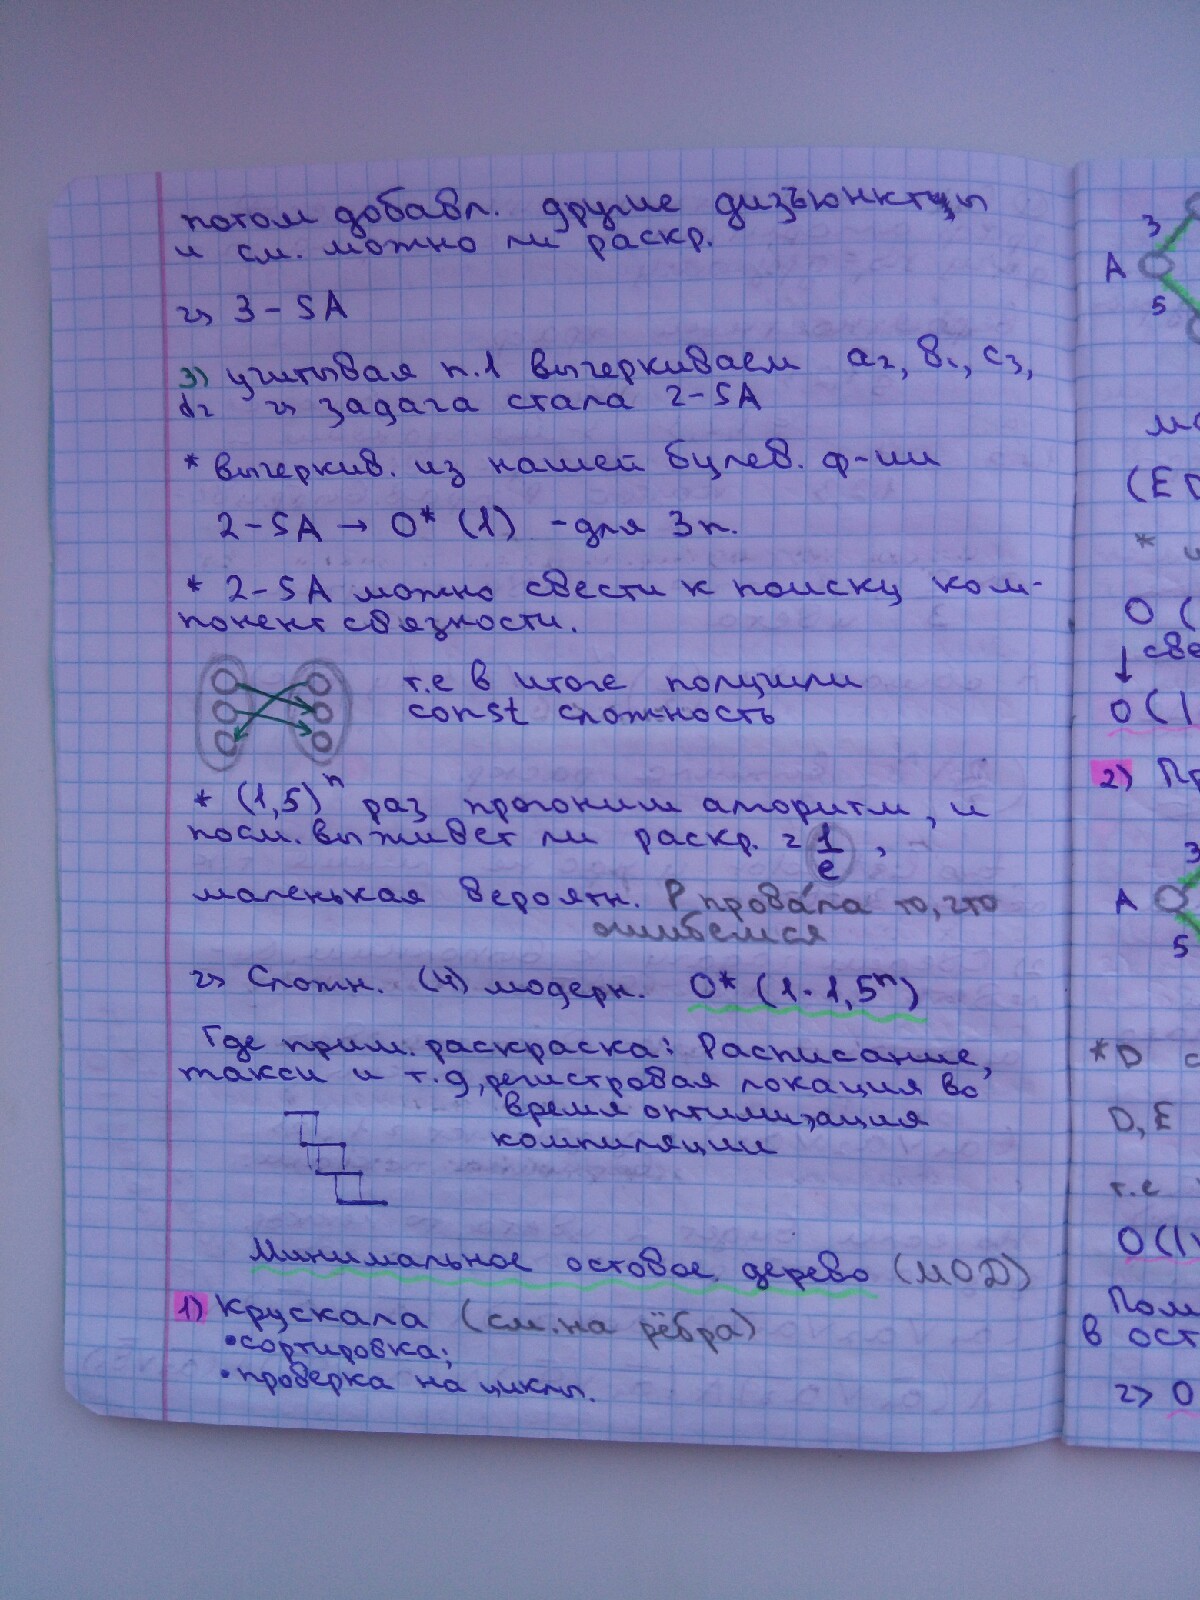 потом добавл. другие дизъюнктцы
и см. можно ли раскр.
=> 3-SA
3) учитывая п.1 вычеркиваем a₂, b₁, c₃,
d₂ => задача стала 2-SA
* вычеркив. из нашей булев. ф-ии
2-SA → O* (1) - для 3 п.
* 2-SA можно свести к поиску ком-
понент связности.
т.е в итоге получили
const сложность
* (1,5)ⁿ раз прогоним алгоритм, и
посм. выживет ли раскр. = 1/e ,
маленькая вероятн. P провала то, что
ошибемся
=> Сложн. (4) модерн. O* (1·1,5ⁿ)
Где прим. раскраска: Расписание,
такси и т.д, регистровая локация во
время оптимизация
компиляции
Минимальное остовое дерево (МОД)
1) Крускала (см. на рёбра)
• сортировка;
• проверка на циклы.
3
A
5
(E
*
O (
све
O (1
2) Пр
3
A
5
* D с
D, E
т.е
O (1
Пом
в ост
=> O